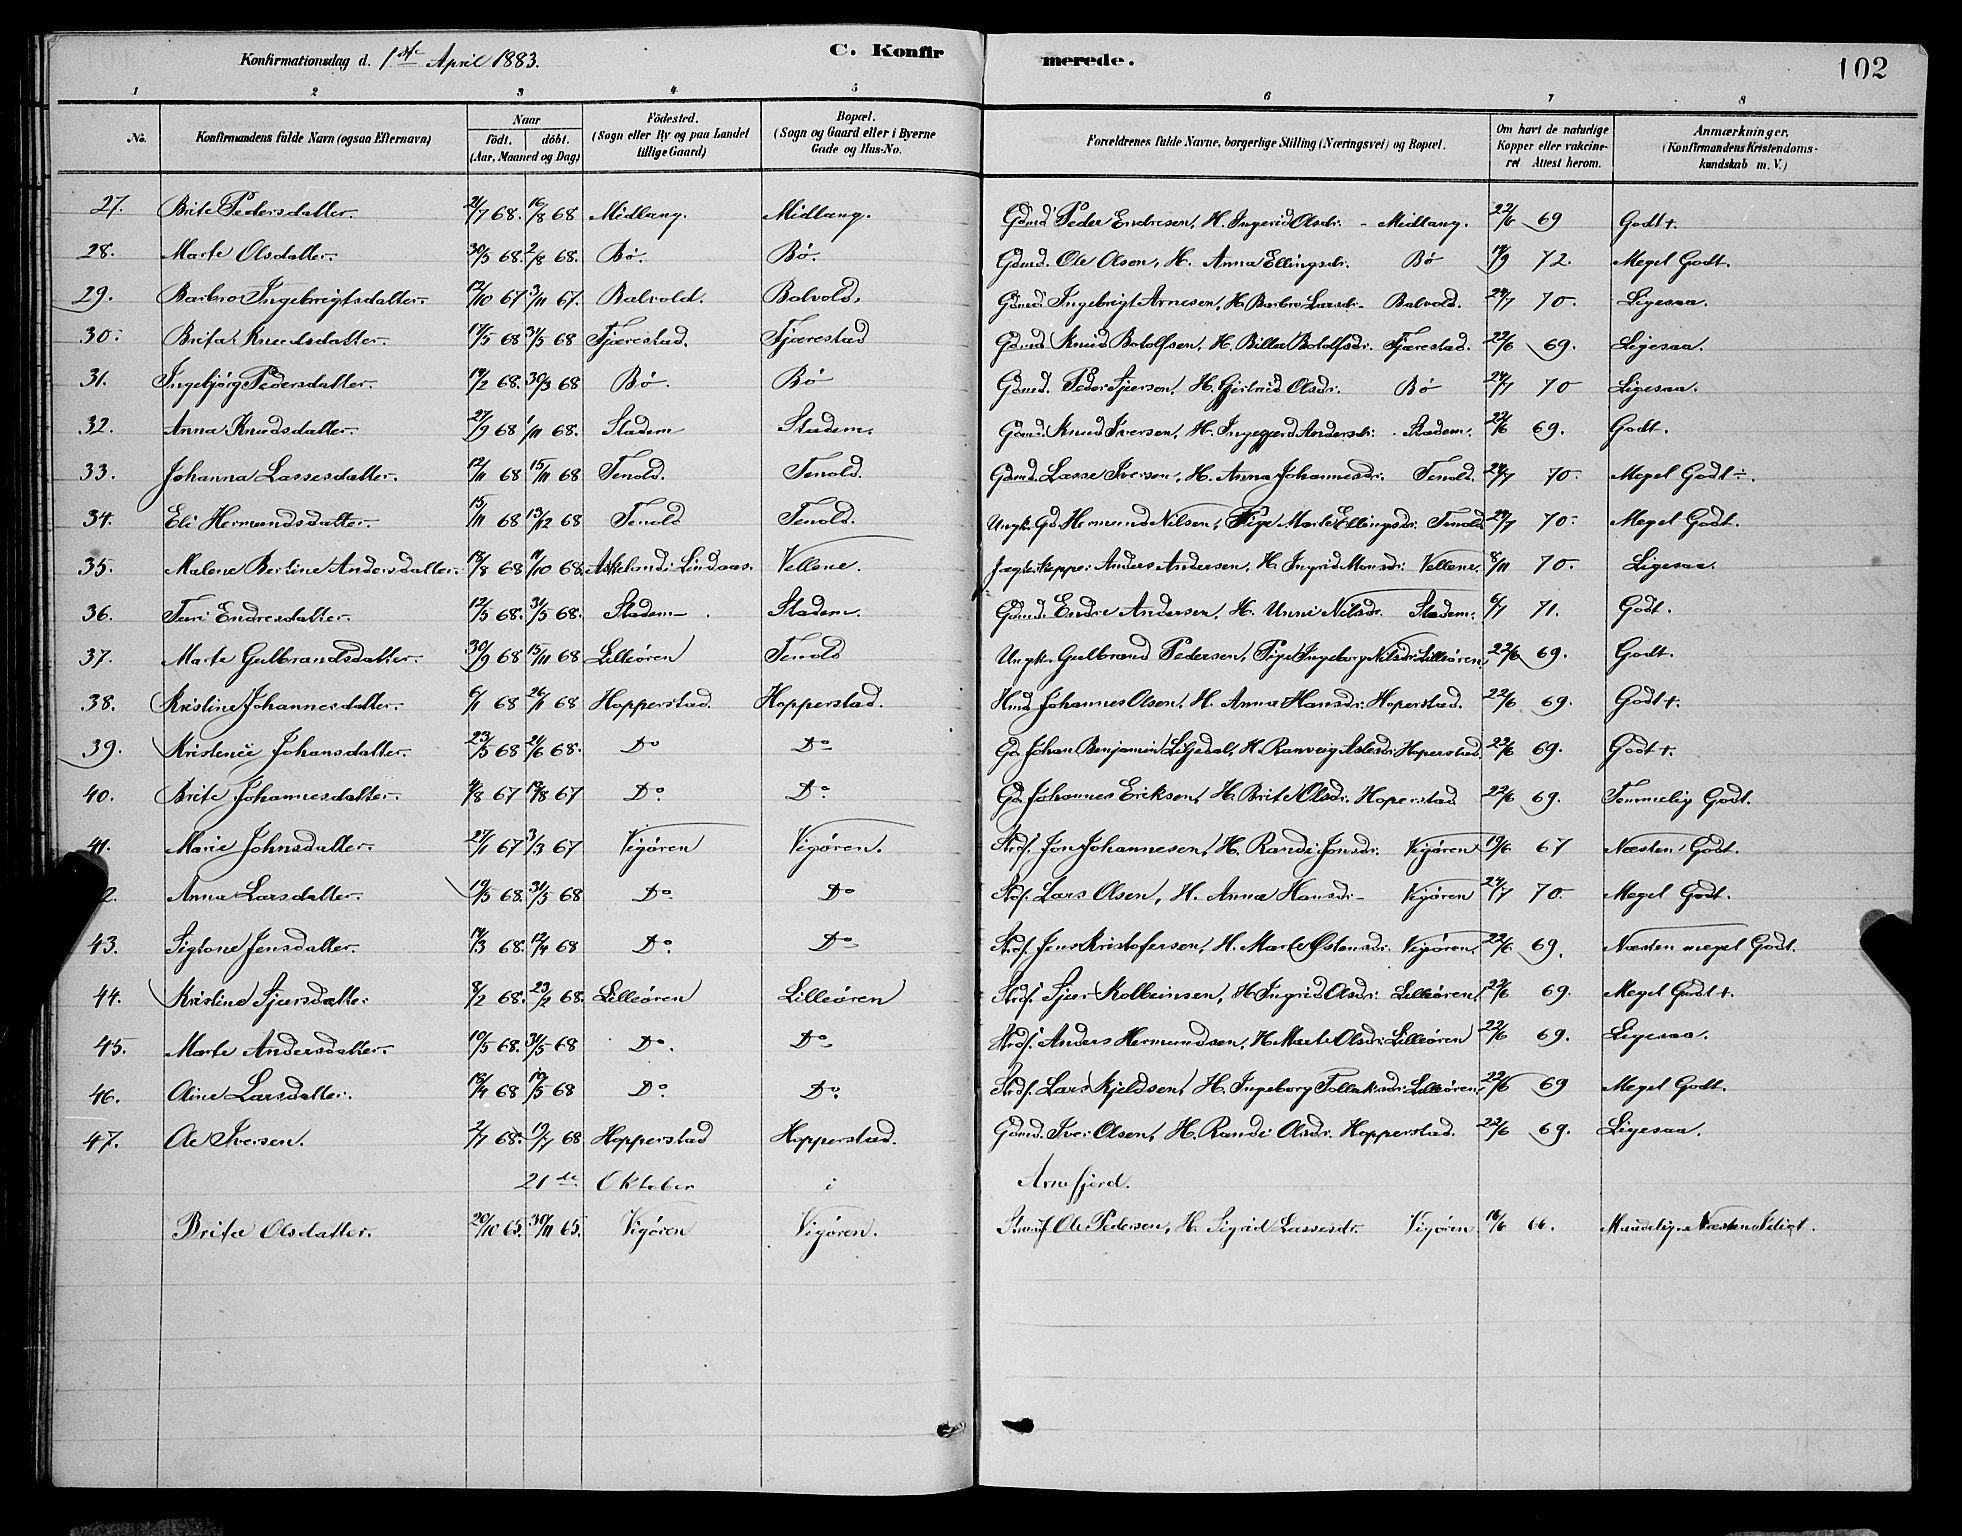 Konfirmationsdag d. 1ste April 1883. C. Konfirmerede. 102
1 2 3 4 5 6 7 8
No. Konfirmandens fulde Navn (ogsaa Efternavn) Naar födt. döbt. (Aar, Maaned og Dag) Födested. (Sogn eller By og paa Landet tillige Gaard) Bopæl. (Sogn og Gaard eller i Byerne Gade og Hus-No. Forældrenes fulde Navne, borgerlige Stilling (Næringsvei) og Bopæl. Om havt de naturlige Kopper eller vakcineret. Attest herom. Anmærkninger. (Konfirmandens Kristendomskundskab m. V.)
27. Brite Pedersdatter. 21/7 68. 16/8 68 Midlang. Midlang. Gdmd. Peder Endresen, H. Ingerid Olsdr. - Midlang. 22/6 69 Godt +.
28. Marte Olsdatter. 30/5 68. 2/8 68. Bø. Bø. Gdmd. Ole Olsen, H. Anna Ellingsdr. Bø 19/9 72. Meget Godt.
29. Barbro Ingebrigtsdatter. 12/10 67 3/11 67. Balvold. Balvold. Gdmd. Ingebrigt Arnesen, H. Barbro Larsdr. Balvold. 24/7 70. Ligesaa.
30. Brita Knudsdatter. 17/5 68 31/5 68 Fjærestad. Fjærestad Gdmd. Knud Botolfsen, H. Billa Botolfsdr. Fjærestad. 22/6 69. Ligesaa.
31. Ingebjörg Pedersdatter. 19/2 68. 30/3 68 Bø. Bø Gdmd. Peder Sjurson, H. Gjertrud Olsdr. Bø 24/7 70 Ligesaa.
32. Anna Knudsdatter. 27/9 68 1/11 68. Stadem Stadem. Gdmd. Knud Iversen, H. Ingegjerd Andersdr. Stadem. 22/6 69. Godt.
33. Johanna Lassesdatter. 12/11 68 15/11 68 Tenold. Tenold. Gdmd. Lasse Iversen, H. Anna Johannesdr. Tenold. 24/7 70. Meget Godt ÷.
34. Eli Hermundsdatter. 15/11 68 13/12 68 Tenold Tenold. Ungk. Gd. Hermund Nilsen, Pige Marte Ellingsdr. Tenold 24/7 70. Meget Godt.
35. Malene Berline Andersdatter. 18/8 68 11/10 68. Askeland i Lindaas. Vellene. Anders Andersen, H. Ingrid Monsdr. Vellene. 8/11 70. Ligesaa.
36. Turi Endresdatter. 12/5 68. 31/5 68. Stadem Stadem. Gdmd. Endre Andersen, H. Unni Nilsdr. Stadem. 6/7 71. Godt.
37. Marte Gulbrandsdatter. 30/9 68 15/11 68 Lilleören Tenold Ungk. Gulbrand Pedersen, Pige Ingeborg Nilsdr. Lilleören, 22/6 69. Godt.
38. Kristine Johannesdatter. 6/1 68 26/1 68 Hopperstad Hopperstad. Hmd. Johannes Olsen, H. Anna Hansdr. Hoperstad. 22/6 69. Godt +.
39. Kristense Johansdatter. 23/5 68 21/6 68. Do Do Gd. Johan Benjamin Ligedal, H. Ranveig Aslesdr. Hoperstad. 22/6 69. Godt +.
40. Brite Johannesdatter. 4/8 67 18/8 67 Do Do Gd. Johannes Eriksen, H. Brite Olsdr. Hoperstad 22/6 69. Temmelig Godt.
41. Marie Johnsdatter. 27/1 67 3/3 67 Vigören Vigören. Strdf. Jon Johannesen, H. Randi Jonsdr. Vigören 19/6 67 Næsten Godt.
2. Anna Larsdatter. 19/5 68. 31/5 68 Do Do Strdf. Lars Olsen, H. Anna Hansdr. Vigören 24/7 70. Meget Godt.
43. Sigtone Jensdatter. 14/3 68. 12/4 68 Do Do Strdf. Jens Kristofersen, H. Marte Østensdr. Vigören. 22/6 69. Næsten meget Godt.
44. Kristine Sjursdatter 8/2 68. 23/2 68. Lilleören Lilleören Strdf. Sjur Kolbeinsen, H. Ingrid Olsdr. Lilleören, 22/6 69. Meget Godt +.
45. Marte Andersdatter. 10/5 68. 31/5 68 Do. Do Strdf. Anders Hermundsen, H. Marte Olsdr. Lilleören 22/6 69. Ligesaa.
46. Oline Larsdatter. 18/4 68 10/5 68 Do. Do. Strdf. Lars Kjeldsen, H. Ingeborg Tollaksdr. Lilleören. 22/6 69 Meget Godt.
47. Ole Iversen. 2/7 68. 19/7 68 Hopperstad Hopperstad. Gdmd. Iver Olsen, H. Randi Olsdr. Hopperstad. 22/6 69. Ligesaa.
21de Oktober i Arnefjord.
Brita Olsdatter. 20/10 65. 30/11 65. Vigören Vigören. Ole Pedersen, H. Sigrid Lassesdr. Vigören 16/6 66. Maadelig. Næsten Idiot.